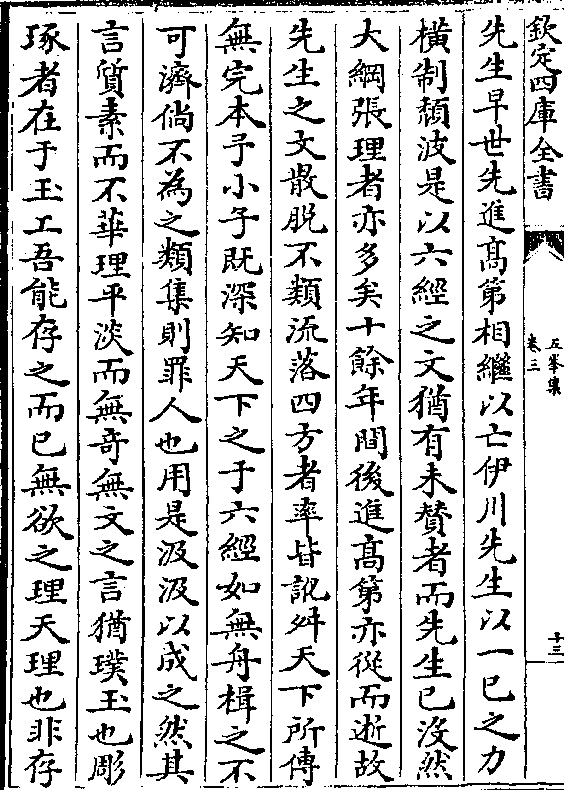 欽定四庫全書
五峯集
卷三
十三
先生早世先進髙第相繼以亡伊川先生以一已之力
橫制頽波是以六經之文猶有未賛者而先生已沒然
大綱張理者亦多矣十餘年間後進髙第亦從而逝故
先生之文散脱不類流落四方者率皆訛舛天下所傳
無完本予小子既深知天下之于六經如無舟楫之不
可濟倘不為之類集則罪人也用是汲汲以成之然其
言質素而不華理平淡而無奇無文之言猶璞玉也彫
琢者在于玉工吾能存之而已無欲之理天理也非存